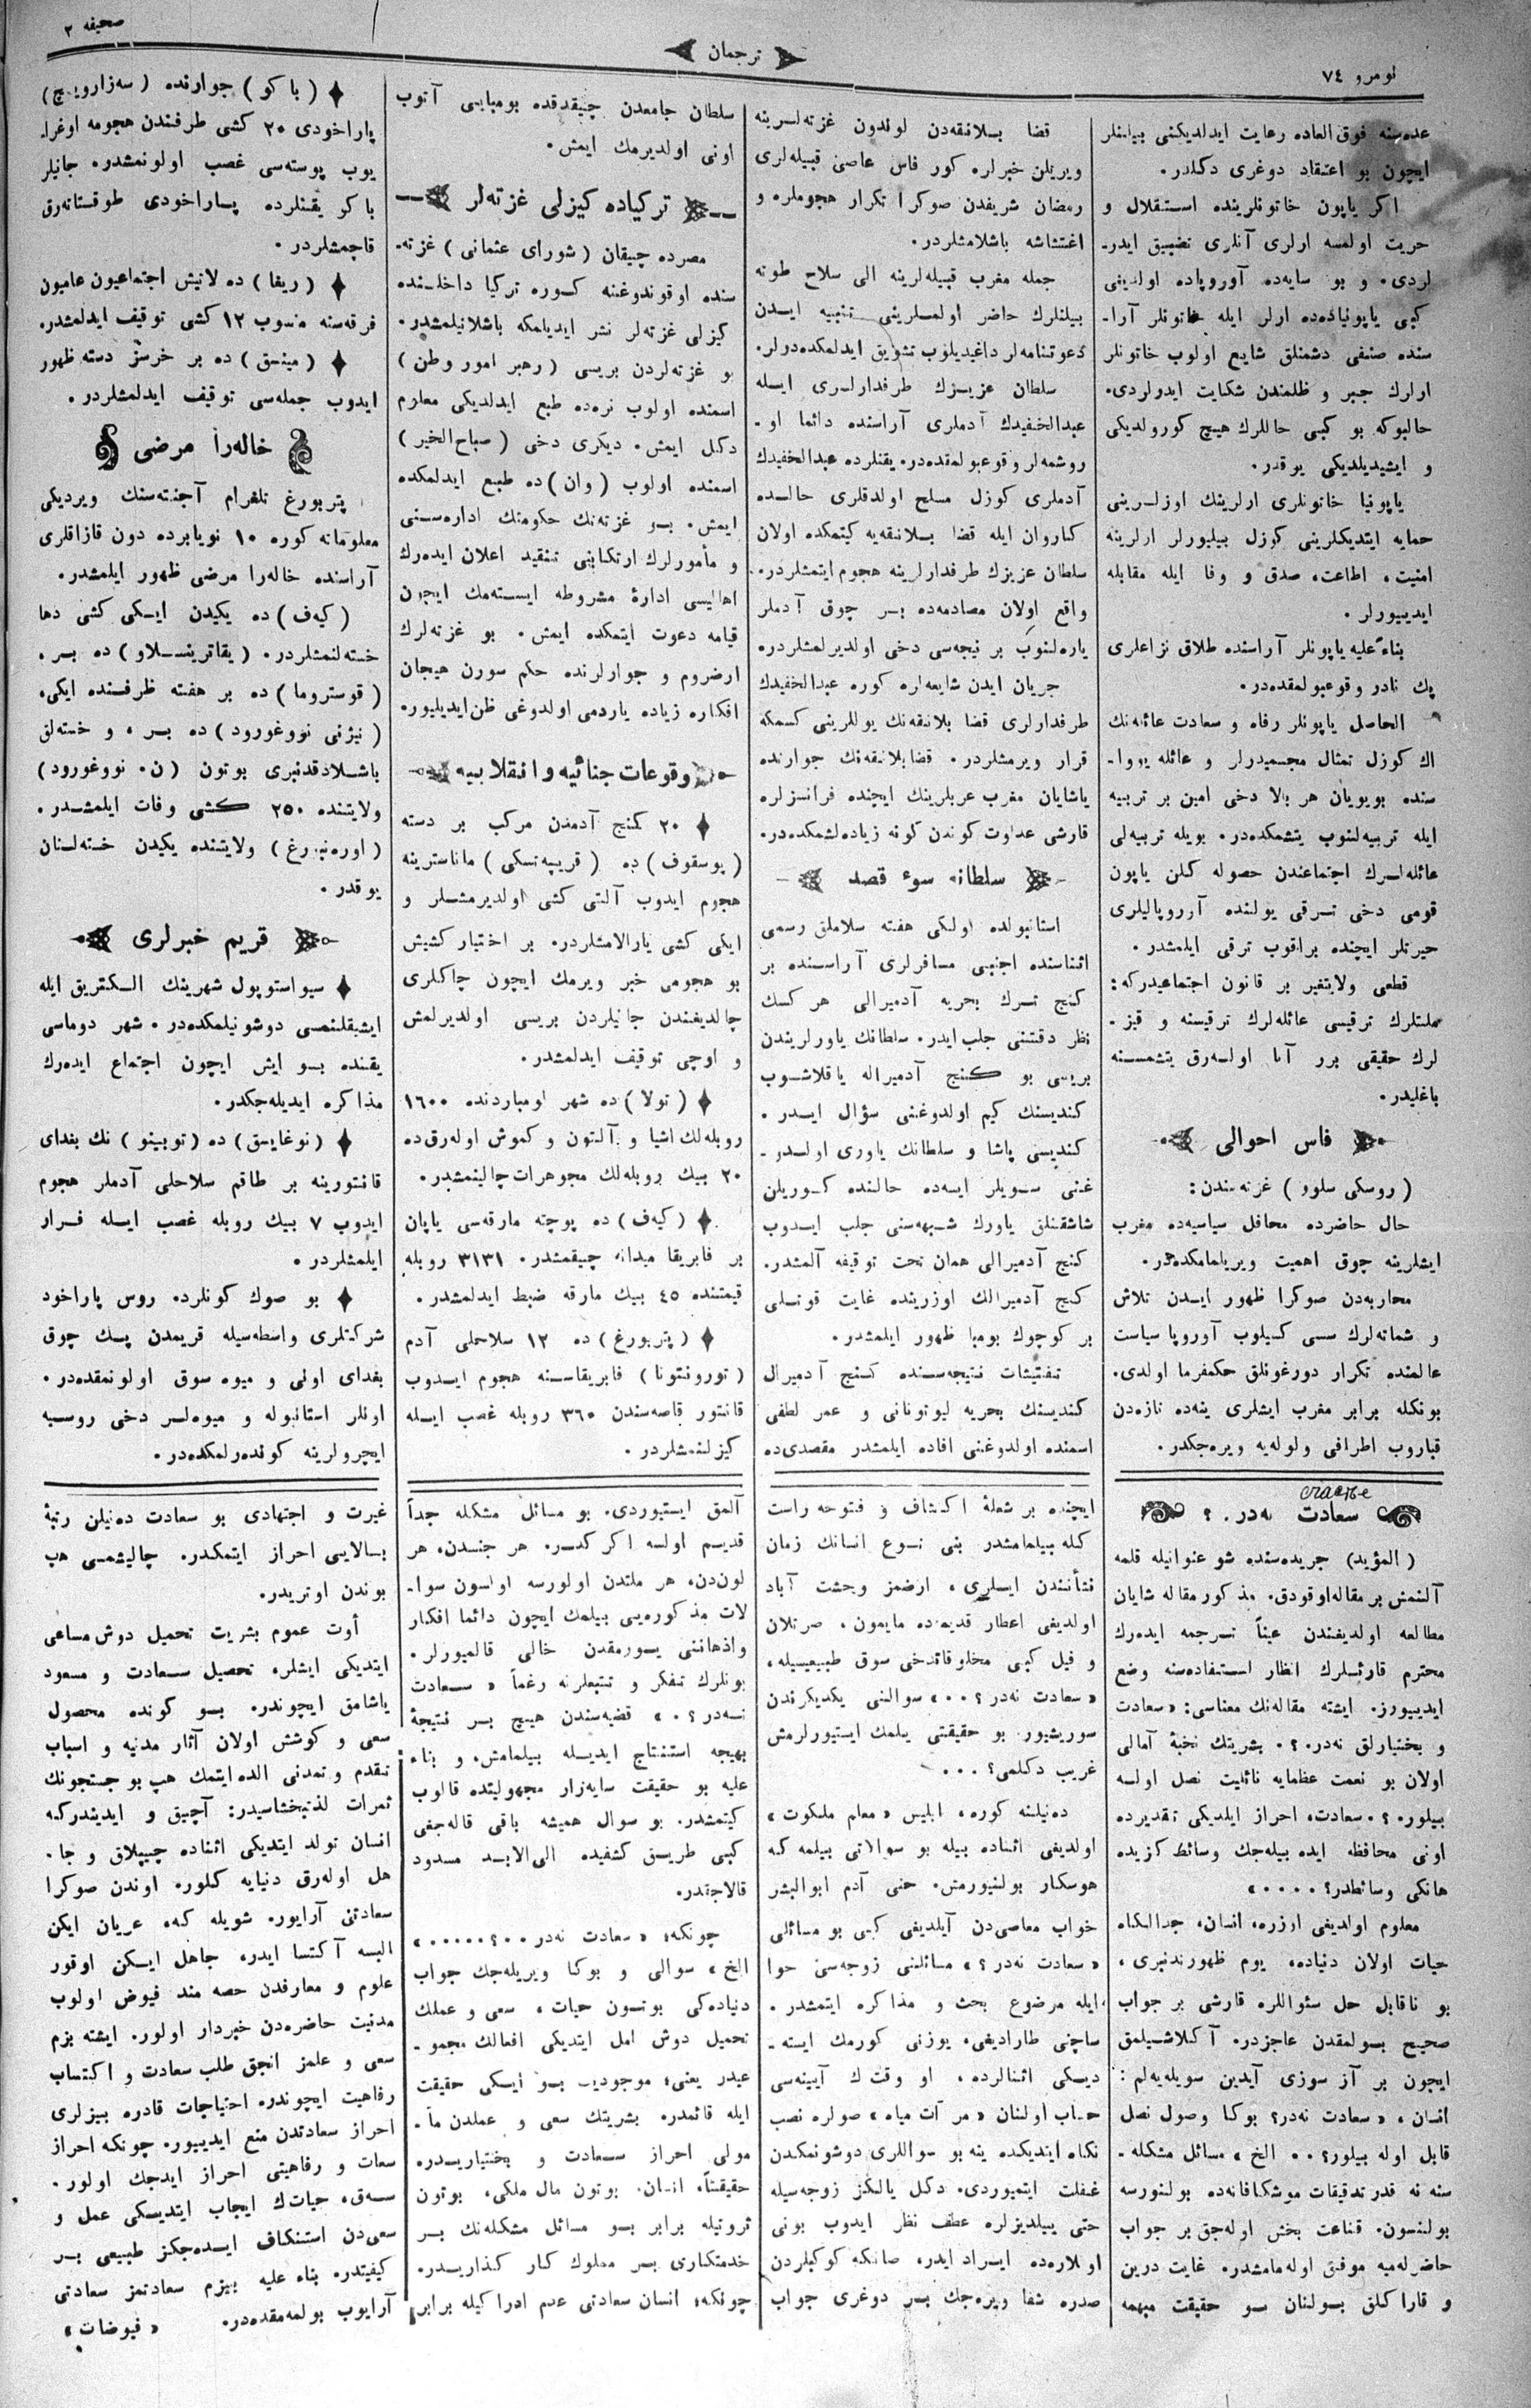 نومرو ٧٤
ترجمان
صحيفه ٢
عده‌سنه فوق العاده رعايت ايدلديكنى بيلنلر
ايچون بو اعتقاد دوغرى دكلدر.
اكر ياپون خاتونلرينده استقلال و
حريت اولمسه ارلرى آنلرى تضييق ايدر-
لردى. و بو سايه‌ده آوروپاده اولدينى
كبى ياپونياده‌ده ارلر ايله خاتونلر آرا-
سنده صنفى دشمنلق شايع اولوب خاتونلر
ارلرك جبر و ظلمندن شكايت ايدرلردى.
حالبوكه بو كبى حاللرك هيچ كورولديكى
و ايشيديلديكى يوقدر.
ياپونيا خاتونلرى ارلرينك اوزلرينى
حمايه ايتديكلرينى كوزل بيليورلر ارلرينه
امنيت، اطاعت، صدق و وفا ايله مقابله
ايدييورلر.
بناءً عليه ياپونلر آراسنده طلاق نزاعلرى
پك نادر وقوعبولمقده‌در.
الحاصل ياپونلر رفاه و سعادت عائله‌نك
اك كوزل تمثال مجسميدرلر و عائله يووا-
سنده بويويان هر بالا دخى امين بر تربيه
ايله تربيه‌لنوب يتشمكده‌در. بويله تربيه‌لى
عائله‌لرك اجتماعندن حصوله كلن ياپون
قومى دخى ترقى يولنده آوروپاليلرى
حيرتلر ايچنده براقوب ترقى ايلمشدر.
قطعى ولايتغير بر قانون اجتماعيدركه:
ملتلرك ترقيسى عائله‌لرك ترقيسنه و قيز-
لرك حقيقى برر آنا اوله‌رق يتشمسنه
باغليدر.
فاس احوالى
(روسكى سلوو) غزته‌سندن:
حال حاضرده محافل سياسيه‌ده مغرب
ايشلرينه چوق اهميت ويريلمامكده‌در.
محاربه‌دن صوكرا ظهور ايدن تلاش
و شماته‌لرك سسى كسيلوب آوروپا سياست
عالمنده تكرار دورغونلق حكمفرما اولدى.
بونكله برابر مغرب ايشلرى ينه‌ده تازه‌دن
قباروب اطرافى ولوله‌يه ويره‌جكدر.
قضا بلانقه‌دن لوندون غزته‌لرينه
ويريلن خبرلره كوره فاس عاصئ قبيله‌لرى
رمضان شريفدن صوكرا تكرار هجوملره و
اغتشاشه باشلامشلردر.
جمله مغرب قبيله‌لرينه الى سلاح طوته
بيلنلرك حاضر اولملرينى تنبيه ايدن
دعوتنامه‌لر داغيديلوب تشويق ايدلمكده‌درلر.
سلطان عزيزك طرفدارلرى ايله
عبدالحفيدك آدملرى آراسنده دائما او-
روشمه‌لر وقوعبولمقده‌در. يقنلرده عبدالحفيدك
آدملرى كوزل مسلح اولدقلرى حالده
كاروان ايله قضا بلانقه‌يه كيتمكده اولان
سلطان عزيزك طرفدارلرينه هجوم ايتمشلردر.
واقع اولان مصادمه‌ده بر چوق آدملر
ياره‌لنوب بر نيجه‌سى دخى اولديرلمشلردر.
جريان ايدن شايعه‌لره كوره عبدالحفيدك
طرفدارلرى قضا بلانقه‌نك يوللرينى كسمكه
قرار ويرمشلردر. قضا بلانقه‌نك جوارنده
ياشايان مغرب عربلرينك ايچنده فرانسزلره
قارشى عداوت كوندن كونه زياده‌لشمكده‌در.
سلطانه سوء قصد
استانبولده اولكى هفته سلاملق رسمى
اثناسنده اجنبى مسافرلرى آراسنده بر
كنج ترك بحريه آدميرالى هر كسك
نظر دقتنى جلب ايدر. سلطانك ياورلريندن
بريسى بو كنج آدميراله ياقلاشوب
كنديسنك كيم اولدوغنى سؤال ايدر.
كنديسى پاشا و سلطانك ياورى اولدو-
غنى سويلر ايسه‌ده حالنده كوريلن
شاشقنلق ياورك شبهه‌سنى جلب ايدوب
كنج آدميرالى همان تحت توقيفه آلمشدر.
كنج آدميرالك اوزرينده غايت قوتلى
بر كوچوك بومبا ظهور ايلمشدر.
تفتيشات نتيجه‌سنده كنج آدميرال
كنديسنك بحريه ليوتونانى و عمر لطفى
اسمنده اولدوغنى افاده ايلمشدر مقصدى‌ده
سلطان جامعدن چيقدقده بومبايى آتوب
اونى اولديرمك ايمش.
تركياده كيزلى غزته‌لر
مصرده چيقان (شوراى عثمانى) غزته-
سنده اوقوندوغنه كوره تركيا داخلنده
كيزلى غزته‌لر نشر ايديلمكه باشلانيلمشدر.
بو غزته‌لردن بريسى (رهبر امور وطن)
اسمنده اولوب نره‌ده طبع ايدلديكى معلوم
دكل ايمش. ديكرى دخى (صباح الخير)
اسمنده اولوب (وان) ده طبع ايدلمكده
ايمش. بو غزته‌نك حكومتك اداره‌سنى
و مأمورلرك ارتكابنى تنقيد اعلان ايده‌رك
اهاليسى ادارۀ مشروطه ايسته‌مك ايچون
قيامه دعوت ايتمكده ايمش. بو غزته‌لرك
ارضروم و جوارلرنده حكم سورن هيجان
افكاره زياده ياردمى اولدوغى ظن ايديليور.
وقوعات جنائيه و انقلابيه
٢٠ كنج آدمدن مركب بر دسته
(پوسقوف) ده (قريپه‌تسكى) ماناسترينه
هجوم ايدوب آلتى كشى اولديرمشلر و
ايكى كشى يارالامشلردر. بر اختيار كشيش
بو هجومى خبر ويرمك ايچون چاكلرى
چالديغندن جانيلردن بريسى اولديرلمش
و اوچى توقيف ايدلمشدر.
(تولا) ده شهر لومباردنده ١٦٠٠
روبله‌لك اشيا و آلتون و كموش اوله‌رق‌ده
٢٠ بيك روبله‌لك مجوهرات چالينمشدر.
(كيه‌ف) ده پوچته مارقه‌سى ياپان
بر فابريقا ميدانه چيقمشدر. ٣١٣١ روبله
قيمتنده ٤٥ بيك مارقه ضبط ايدلمشدر.
(پتربورغ) ده ١٢ سلاحلى آدم
(تورونتونا) فابريقاسنه هجوم ايدوب
قانتور قاصه‌سندن ٣٦٠ روبله غصب ايله
كيزلنمشلردر.
(باكو) جوارنده (سه‌زارويچ)
پاراخودى ٢٠ كشى طرفندن هجومه اوغرا-
يوب پوسته‌سى غصب اولونمشدر. جانيلر
باكو يقنلرده پاراخودى طوقتاته‌رق
قاچمشلردر.
(ريغا) ده لاتيش اجتماعيون عاميون
فرقه‌سنه منسوب ١٢ كشى توقيف ايدلمشدر.
(مينسق) ده بر خرسز دسته ظهور
ايدوب جمله‌سى توقيف ايدلمشلردر.
خاله‌را مرضى
پتربورغ تلغرام آجنته‌سنك ويرديكى
معلوماته كوره ١٠ نويابرده دون قازاقلرى
آراسنده خاله‌را مرضى ظهور ايلمشدر.
(كيه‌ف) ده يكيدن ايكى كشى دها
خسته‌لنمشلردر. (يقاترينسلاو) ده بر،
(قوستروما) ده بر هفته ظرفنده ايكى،
(نيژنى نووغورود) ده بر، و خسته‌لق
باشلادقدنبرى بوتون (ن. نووغورود)
ولايتنده ٢٥٠ كشى وفات ايلمشدر.
(اوره‌نبورغ) ولايتنده يكيدن خسته‌لنان
يوقدر.
قريم خبرلرى
سيواستوپول شهرينك الكتريق ايله
ايشيقلنمسى دوشونيلمكده‌در. شهر دوماسى
يقنده بو ايش ايچون اجتماع ايده‌رك
مذاكره ايديله‌جكدر.
(نوغايسق) ده (توبينو) نك بغداى
قانتورينه بر طاقم سلاحلى آدملر هجوم
ايدوب ٧ بيك روبله غصب ايله فرار
ايلمشلردر.
بو صوك كونلرده روس پاراخود
شركتلرى واسطه‌سيله قريمدن پك چوق
بغداى اونى و ميوه سوق اولونمقده‌در.
اونلر استانبوله و ميوه‌لر دخى روسيه
ايچرولرينه كوندرلمكده‌در.
счастье
سعادت نه‌در. ؟
(المؤيد) جريده‌سنده شو عنوانيله قلمه
آلنمش بر مقاله اوقودق. مذكور مقاله شايان
مطالعه اولديغندن عيناً ترجمه ايده‌رك
محترم قارئلرك انظار استفاده‌سنه وضع
ايدييورز. ايشته مقاله‌نك معناسى: «سعادت
و بختيارلق نه‌در. ؟. بشريتك نخبۀ آمالى
اولان بو نعمت عظمايه نائليت نصل اوله
بيلور. ؟. سعادت، احراز ايلديكى تقديرده
اونى محافظه ايده بيله‌جك وسائط كزيده
هانكى وسائطدر؟ ....»
معلوم اولديغى اوزره، انسان، جدالكاه
حيات اولان دنياده، يوم ظهورندنبرى،
بو ناقابل حل سئواللره قارشى بر جواب
صحيح بولمقدن عاجزدر. آكلاشيلمق
ايچون بر آز سوزى آيدين سويله‌يه‌لم:
انسان، «سعادت نه‌در؟ بوكا وصول نصل
قابل اوله بيلور؟.. الخ» مسائل مشكله-
سنه نه قدر تدقيقات موشكافانه‌ده بولنورسه
بولنسون. قناعت بخش اوله‌جق بر جواب
حاضرله‌ميه موفق اوله‌مامشدر. غايت درين
و قاراكلق بولنان بو حقيقت مبهمه
ايچنده بر شعلۀ اكتشاف و فتوحه راست
كله بيلمامشدر بنى نوع انسانك زمان
نشأتندن ايلرى، ارضمز وحشت آباد
اولديغى اعطار قديمه‌ده مايمون، صرتلان
و فيل كبى مخلوقاتدخى سوق طبيعيسيله،
«سعادت نه‌در؟..» سوالنى يكديكرندن
سوريشيور. بو حقيقتى بيلمك ايستيورلرمش
غريب دكلمى؟...
ده‌نيلنه كوره، ابليس «معلم ملكوت»
اولديغى اثناده بيله بو سوالاتى بيلمه كه
هوسكار بولنيورمش. حتى آدم ابوالبشر
خواب معاصى‌دن آيلديغى كبى بو مسائلى
«سعادت نه‌در؟» مسائلنى زوجه‌سى حوا
ايله مرضوع بحث و مذاكره ايتمشدر.
ساچنى طاراديغى، يوزنى كورمك ايسته-
ديكى اثنالرده، او وقتك آيينه‌سى
حساب اولنان «مرآت مياه» صولره نصب
نكاه ايتديكده ينه بو سواللرى دوشونمكدن
غفلت ايتميوردى. دكل يالكز زوجه‌سيله
حتى ييلديزلره عطف نظر ايدوب بونى
اونلاره‌ده ايراد ايدر، صانكه كوكبلردن
صدره شفا ويره‌جك بر دوغرى جواب
آلمق ايستيوردى. بو مسائل مشكله جداً
قديم اولسه اكر كدر. هر جنسدن، هر
لون‌دن، هر ملتدن اولورسه اولسون سوا-
لات مذكوره‌يى بيلمك ايچون دائما افكار
واذهاننى يورمقدن خالى قالميورلر.
بونلرك تفكر و تتبعلرنه رغماً «سعادت
نه‌در؟.» قضيه‌سندن هيچ بر نتيجۀ
بهيجه استنتاج ايديله بيلمامش، و بناء
عليه بو حقيقت سايه‌زار مجهوليتده قالوب
كيتمشدر. بو سوال هميشه باقى قاله‌جغى
كبى طريق كشفيده الى الابد مسدود
قالاجقدر.
چونكه، «سعادت نه‌در..؟.....»
الخ» سوالى و بوكا ويريله‌جك جواب
دنياده‌كى بوتون حيات، سعى و عملك
تحميل دوش امل ايتديكى افعالك مجمو-
عيدر يعنى، موجوديت بو ايكى حقيقت
ايله قائمدر. بشريتك سعى و عملدن مأ-
مولى احراز سعادت و بختياريدر.
حقيقتاً، انسان. بوتون مال ملكى، بوتون
ثروتيله برابر بو مسائل مشكله‌نك بر
خدمتكارى بر مملوك كار كذاريدر.
چونكه، انسان سعادتى عدم ادراكيله برابر
غيرت و اجتهادى بو سعادت ده‌نيلن رتبۀ
بالايى احراز ايتمكدر. چاليشمسى هپ
بوندن اوتريدر.
أوت عموم بشريت تحميل دوش مساعى
ايتديكى ايشلر، تحصيل سعادت و مسعود
ياشامق ايچوندر. بو كونده محصول
سعى و كوشش اولان آثار مدنيه و اسباب
تقدم و تمدنى الده ايتمك هپ بو جستجونك
ثمرات لذتبخشاسيدر: آچيق و ايديندركه
انسان تولد ايتديكى اثناده چيپلاق و جا-
هل اوله‌رق دنيايه كلور. اوندن صوكرا
سعادتنى آرايور. شويله كه، عريان ايكن
البسه آكتسا ايدر، جاهل ايكن اوقور
علوم و معارفدن حصه مند فيوض اولوب
مدنيت حاضره‌دن خبردار اولور. ايشته بزم
سعى و علمز انجق طلب سعادت و اكتساب
رفاهيت ايچوندر. احتياجات قادره بيزلرى
احراز سعادتدن منع ايدييور. چونكه احراز
سعات و رفاهيتى احراز ايدجك اولور.
سه‌ق، حياتك ايجاب ايتديكى عمل و
سعى‌دن استنكاف ايده‌جكز طبيعى بر
كيفيتدر. بناء عليه بيزم سعادتمز سعادتى
آرايوب بولمه‌مقده‌در. «فيوضات»